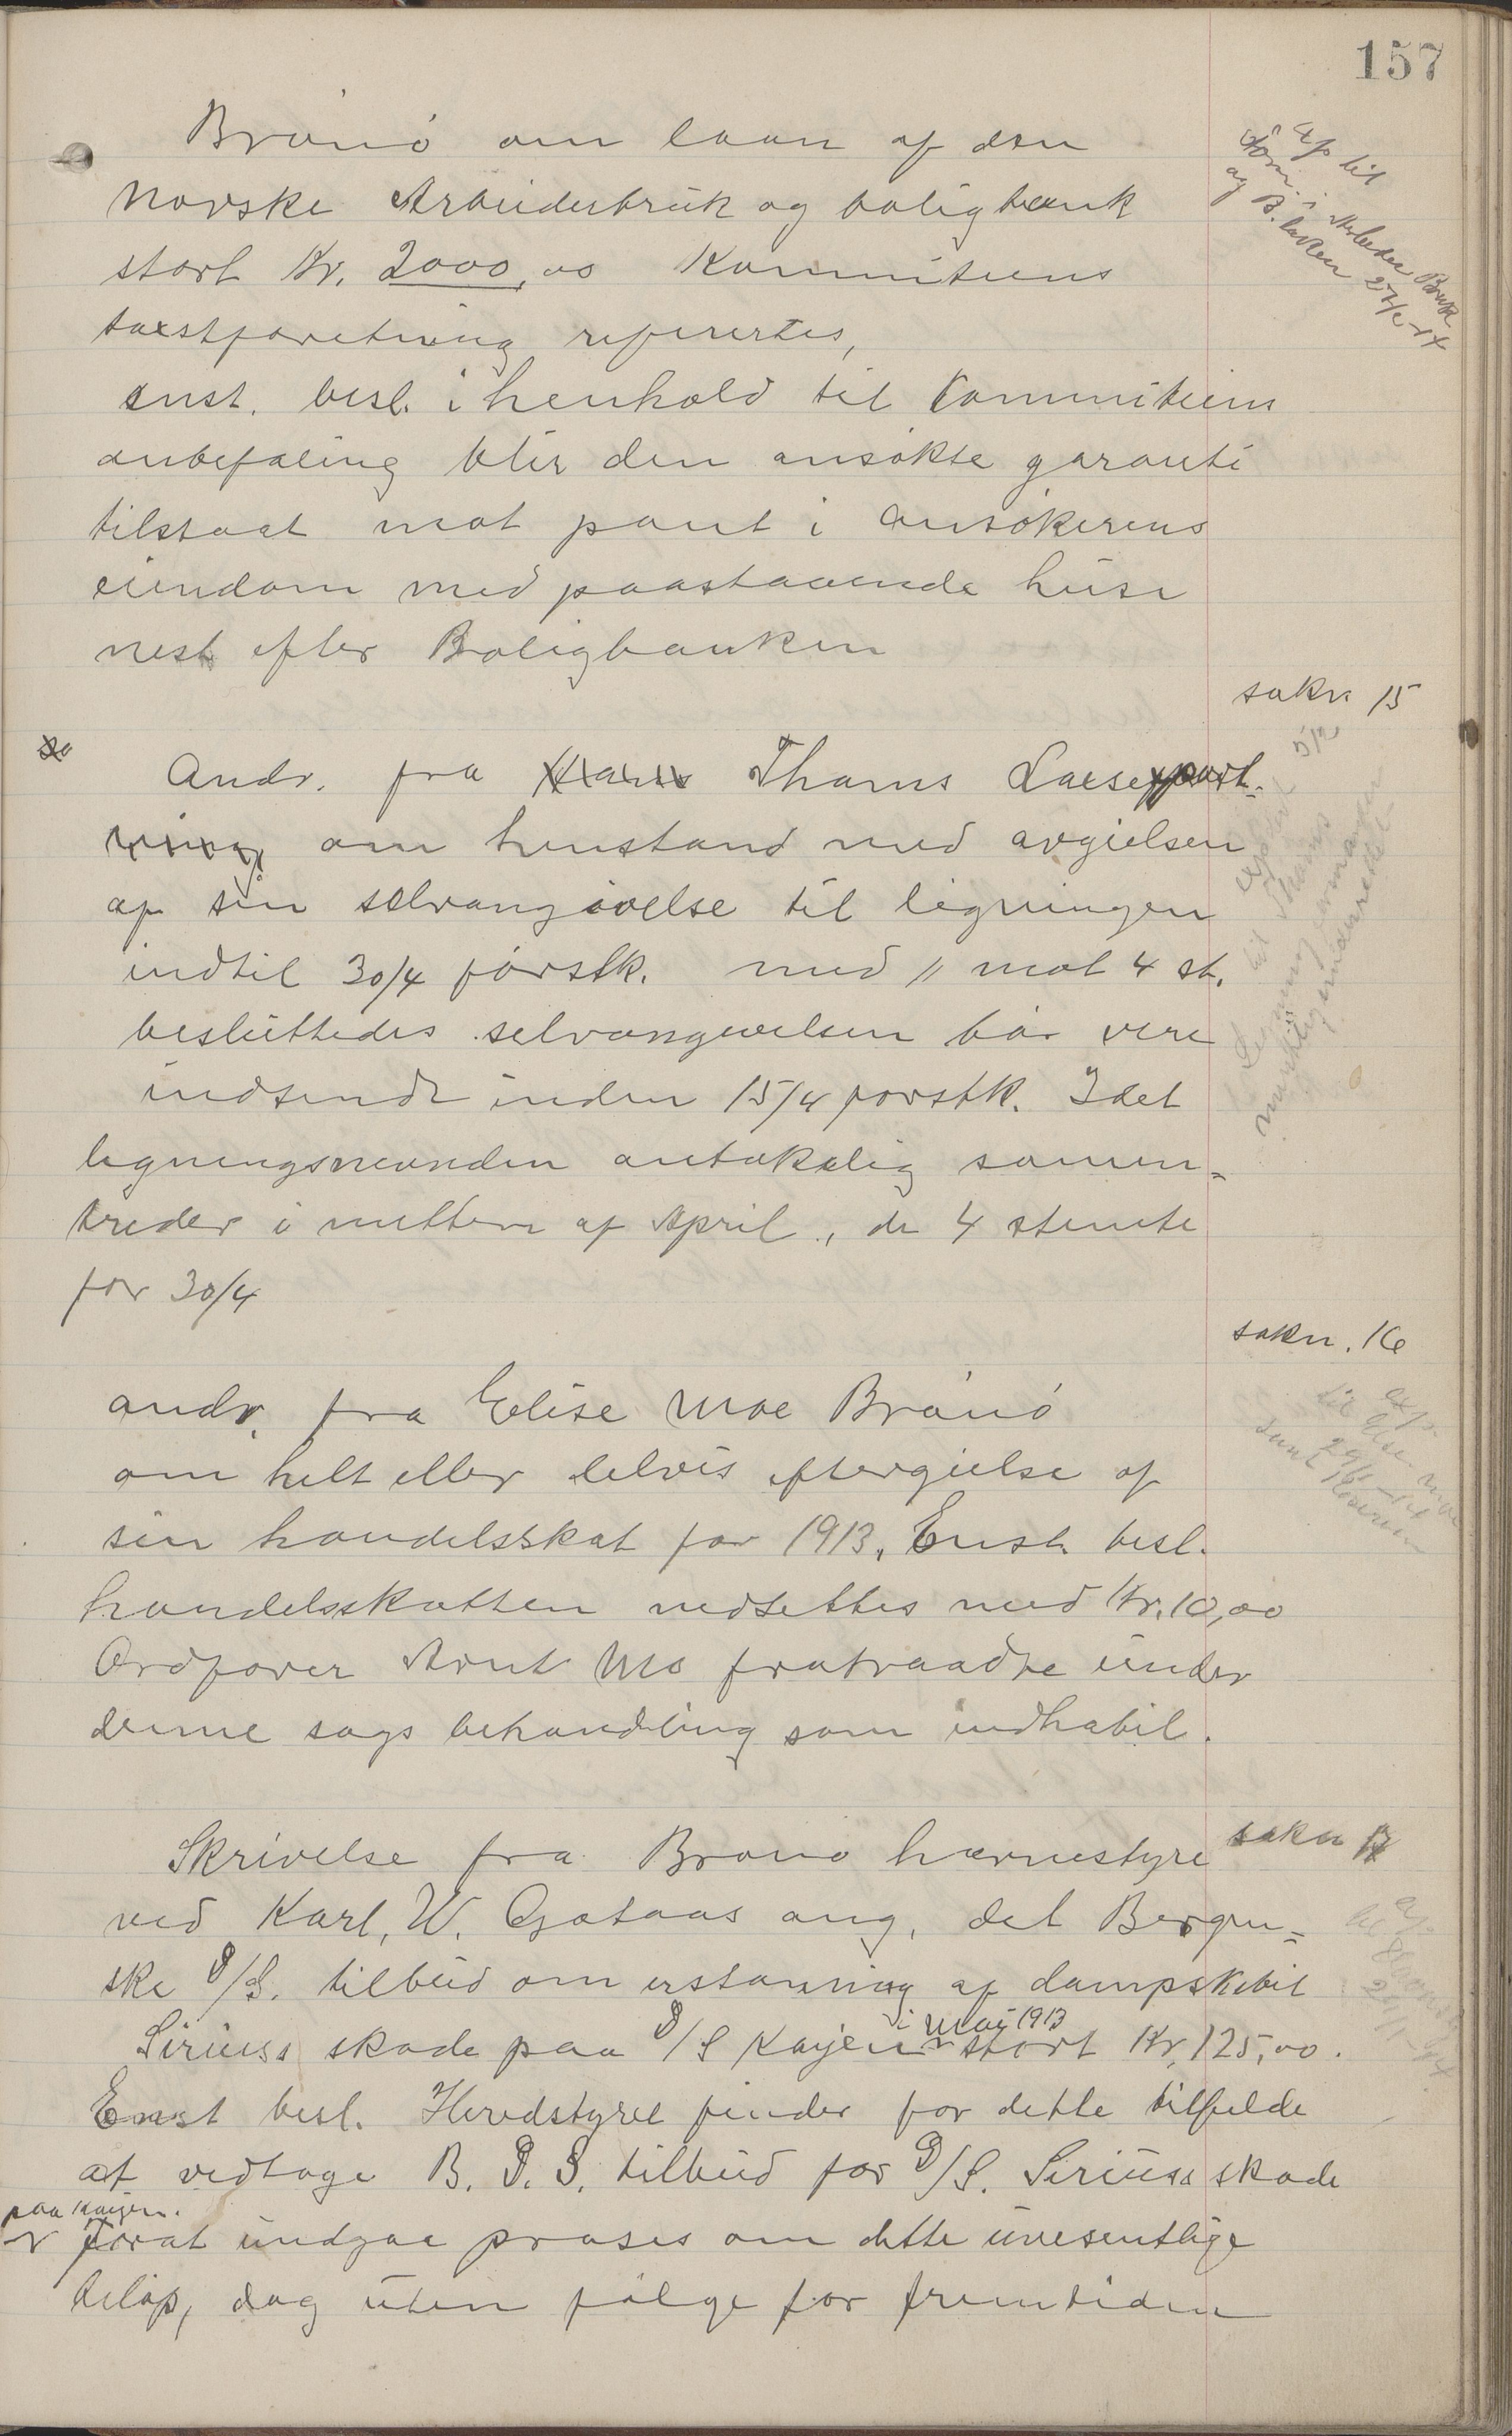 157
Brønø om laan af den
norske Arbeiderbruk og boligbank
stort Kr. 2000,00 Kommiteens
taxstforetning referertes,
enst. besl. i henhold til kommiteens
anbefaling blir den ansøkte garanti
tilstaat mot pant i ansøkerens
eiendom med paastaaende huse
nest efter Boligbanken
sakn 15
Andr. fra Thams Lakseexport-
om henstand med avgielsen
af sin selvangivelse til ligningen
indtil 30/4 førstk. med 11 mot 4 st.
besluttedes selvangivelsen bør vere
indsendt inden 15/4 førstk. Idet
ligningsnevnden antakelig sammen-
treder i mitten af April, de 4 stemte
for 30/4
sakn. 16
andr. fra Elise Moe Brønø
om helt eller delvis eftergielse af
sin handelsskat for 1913, Enst. besl.
handelsskatten nedsettes med Kr. 10,00
Ordfører Arnt Mo fratraadte under
denne sags behandling som indhabil.
sakn 17
Skrivelse fra Brønø havnestyre
ved Karl. W. ang. det Bergen-
ske D/S. tilbud om erstatning af dampskibet
Siriuss skade paa D/S Kayen i Mai 1913 stort Kr. 125,00.
Enst besl. Herredstyret finder for dette tilfelde
at vedtage B. D. S. tilbud for D/S. Siriuss skade
paa Kaijen.
forat undgaa proses om dette uvesentlige
beløp, dog uten følge for fremtiden